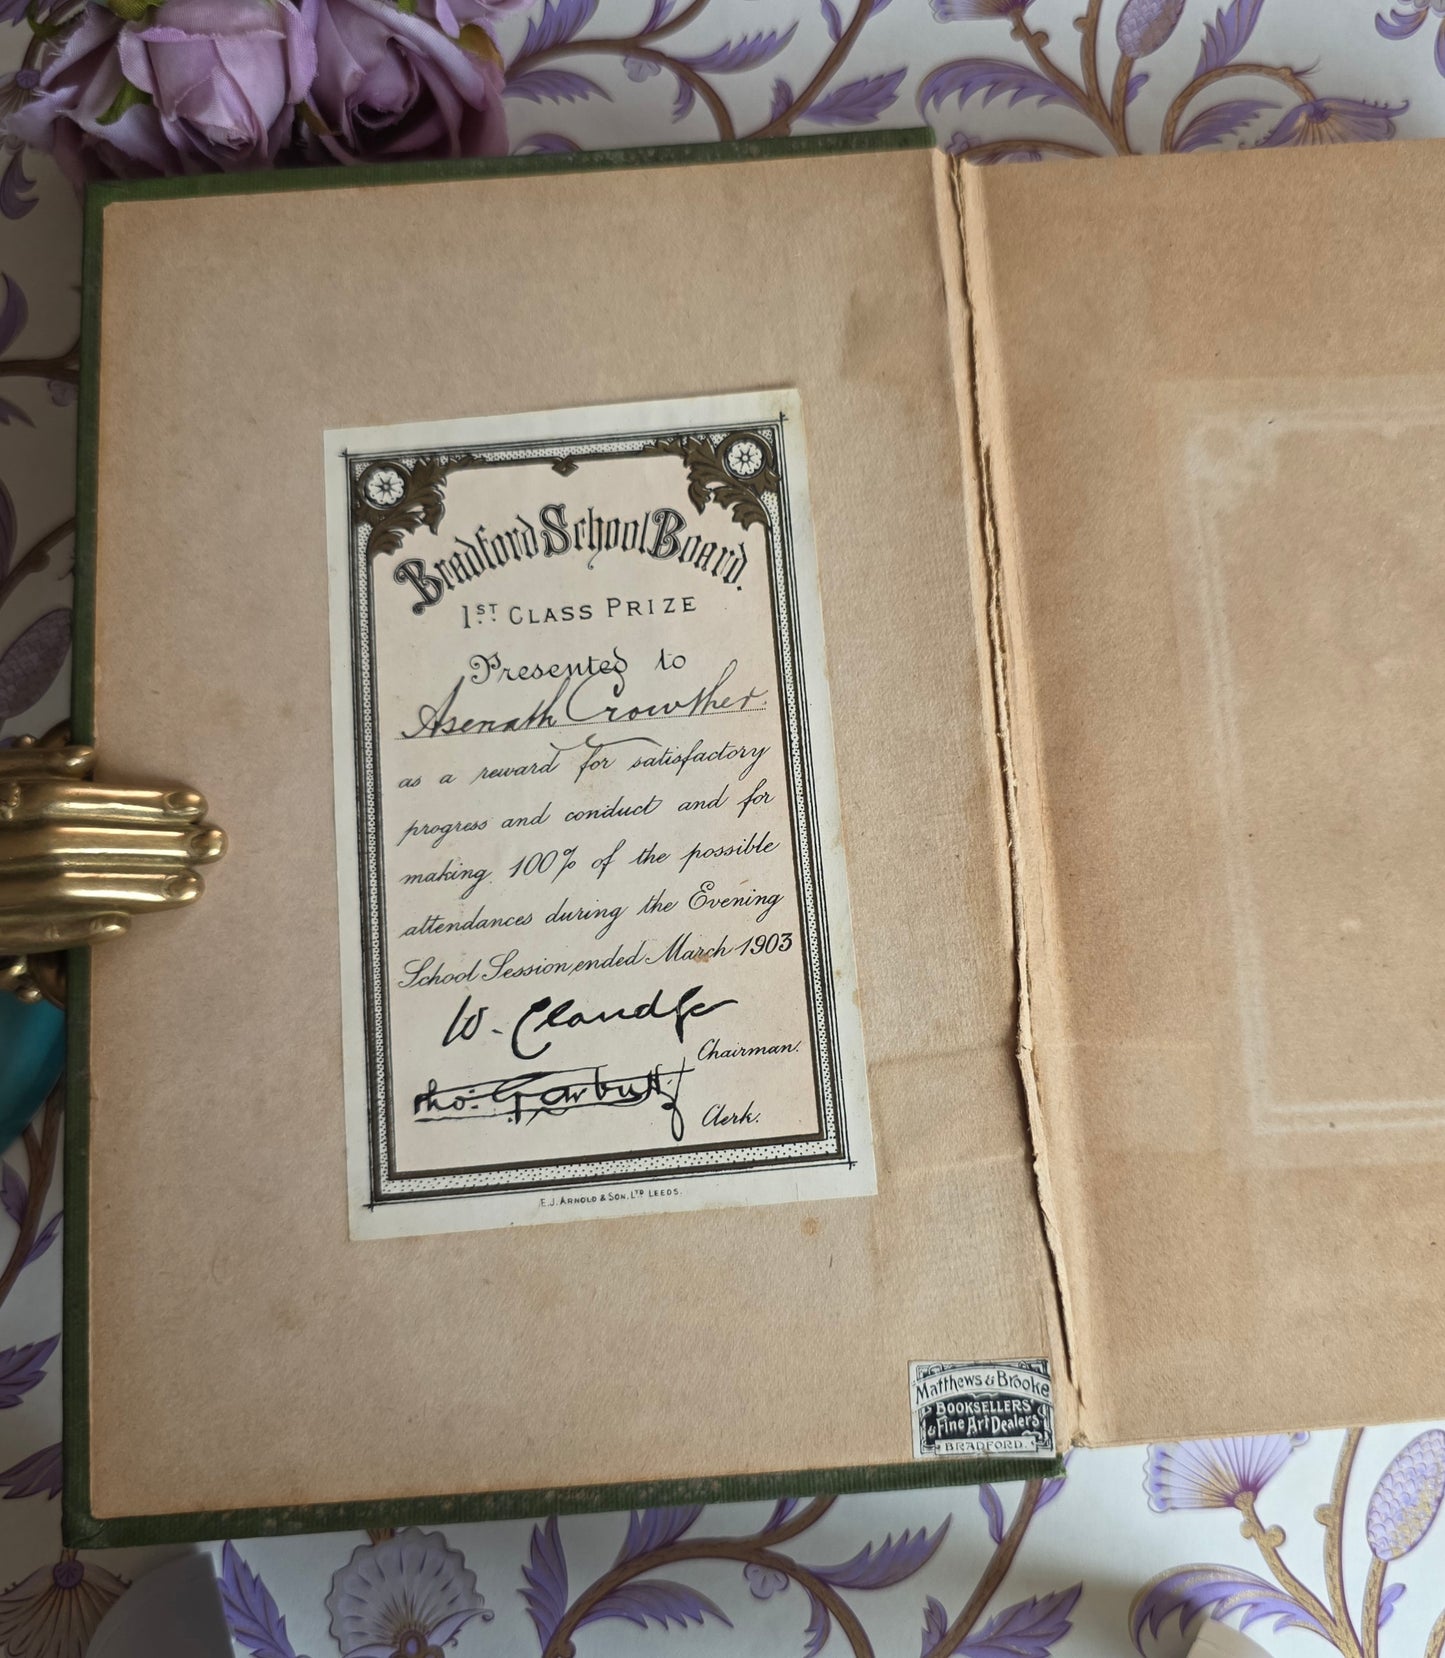 Bradford School Board.
1ST. CLASS PRIZE
Presented to
Asenath Crowther.
as a reward for satisfactory
progress and conduct and for
making 100% of the possible
attendances during the Evening
School Session, ended March 1903
W. Claridge
Chairman.
Tho: Garbutt
Clerk.
E.J. ARNOLD & SON, LTD LEEDS.
Matthews & Brooke
BOOKSELLERS
& Fine Art Dealers
BRADFORD.